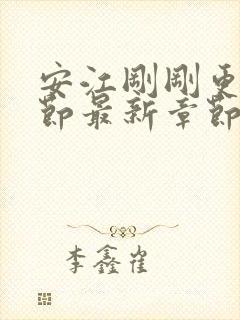 安江刚刚更
节最新章节
李鑫崔